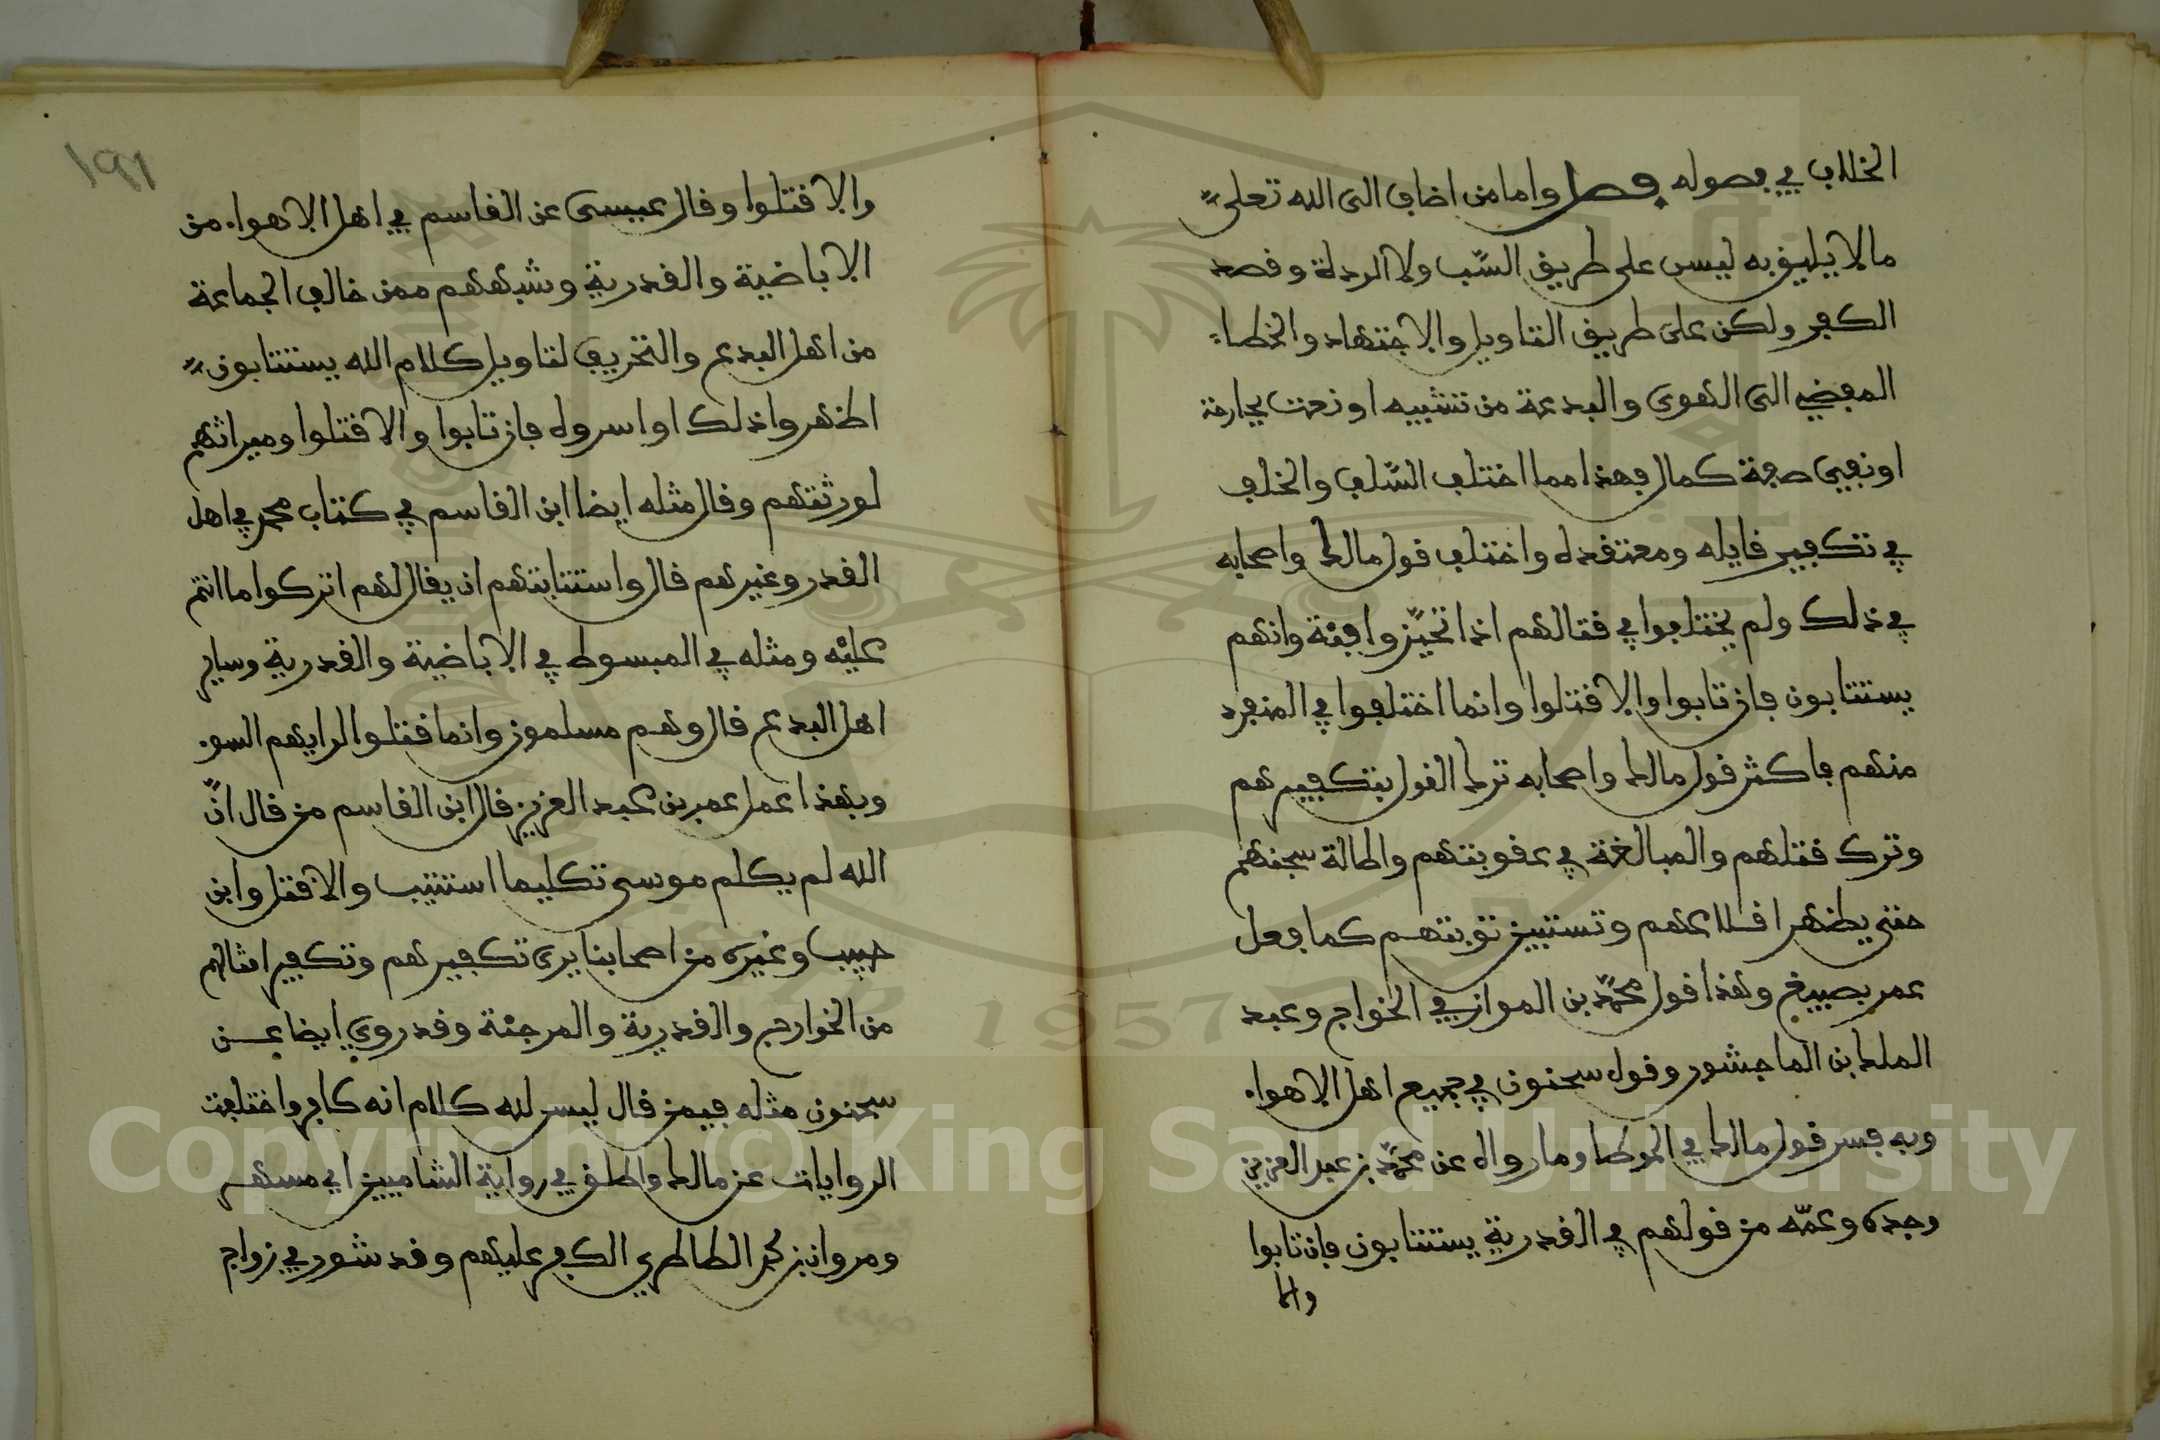 الخلاف في فصوله فصل واما من اضاف الى الله تعلى
ما لا يليق به ليس على طريق السّب ولا الردة وقصد
الكفر ولكن على طريق التاويل والاجتهاد والخطا
المفضي الى الهوى والبدعة من تشبيه او نعت بجارحة
او نفي صفة كمال فهذا مما اختلف السّلف والخلف
في تكفير قايله ومعتقده واختلف قول مالك واصحابه
في ذلك ولم يختلفوا في قتالهم اذا تحيّزوا فيئة وانهم
يستتابون فان تابوا والا قتلوا وانما اختلفوا في المنفرد
منهم فاكثر قول مالك واصحابه ترك القول بتكفيرهم
وترك قتلهم والمبالغة في عقوبتهم واطالة سجنهم
حتى يظهر اقلاعهم وتستبين توبتهم كما فعل
عمر بصبيغ وهذا قول محمّد بن المواز في الخوارج وعبد
الملك بن الماجشور وقول سحنون في جميع اهل الاهواء
وبه فسر قول مالك في الموطا وما رواه عن محمّد بن عبد العزيز
وجده وعمّه من قولهم في القدرية يستتابون فان تابوا
والا
١٩١
والا قتلوا وقال عيسى عن القاسم في اهل الاهواء من
الاباضية والقدرية وشبههم ممن خالف الجماعة
من اهل البدع والتحريف لتاويل كلام الله يستتابون
اظهروا ذلك او اسروه فان تابوا والا قتلوا وميراثهم
لورثتهم وقال مثله ايضا ابن القاسم في كتاب محمد في اهل
القدر وغيرهم قال واستتابتهم ان يقال لهم اتركوا ما انتم
عليْه ومثله في المبسوط في الاباضية والقدرية وساير
اهل البدع قال وهم مسلمون وانما قتلوا لرايهم السو
وبهذا عمل عمر بن عبد العزيز قال ابن القاسم من قال انّ
الله لم يكلم موسى تكليما استتيب والا قتل وابن
حبيب وغيره من اصحابنا يرى تكفيرهم وتكفير امثالهم
من الخوارج والقدرية والمرجئة وقد روي ايضا عن
سحنون مثله فيمن قال ليس لله كلام انه كافر واختلفت
الروايات عن مالك واطلق في رواية الشاميين ابي مسهر
ومروان بن محمد الطاطري الكفر عليهم وقد شور في زواج
Copyright © King Saud University
1957